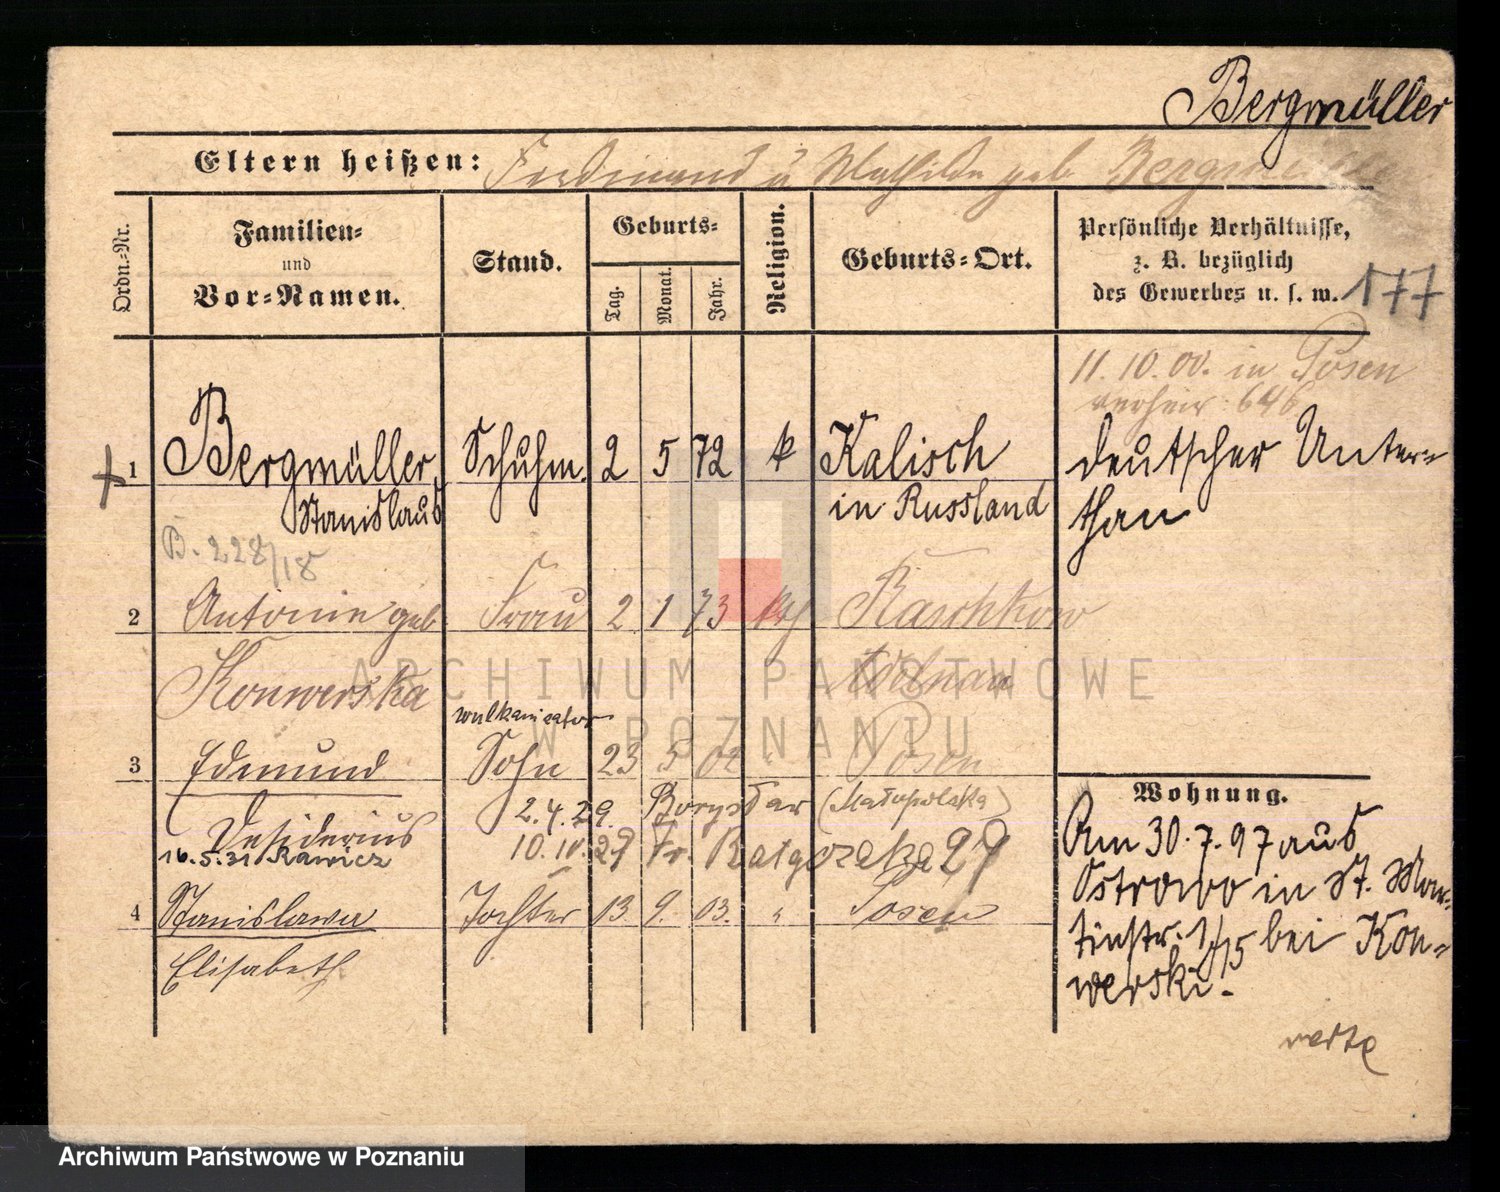 Bergmüller
Eltern heißen: Ferdinand u Mathilde geb. Bergmüller
Ordn.-Nr.
Familien-
und
Vor-Namen.
Stand.
Geburts-
Tag.
Monat.
Jahr.
Religion.
Geburts-Ort.
Persönliche Verhältnisse,
z. B. bezüglich
des Gewerbes u. s. w.
177
11. 10. 00. in Posen
verheir: 646
1 Bergmüller, Schuhm. 2 5 72 k Kalisch deutscher Unter-
Stanislaus in Russland than
B. 228/18
2 Antonie geb Frau 2 1 73 kth Raschkow
Konwerska Adelnau
wulkanizator
3 Edmund Sohn 23 5 02 Posen
Desiderius 2.4.29. Borysław (Małopolska)
16.5.31 Rawicz 10.IV.29 Fr. Ratajczaka 29
4 Stanislawa Tochter 13. 9. 03. " Posen
Elisabeth
Wohnung.
Am 30.7.97 aus
Ostrowo in St. Mar-
tinstr. 1/15 bei Kon-
werski.
verte
ARCHIWUM PAŃSTWOWE
W POZNANIU
Archiwum Państwowe w Poznaniu